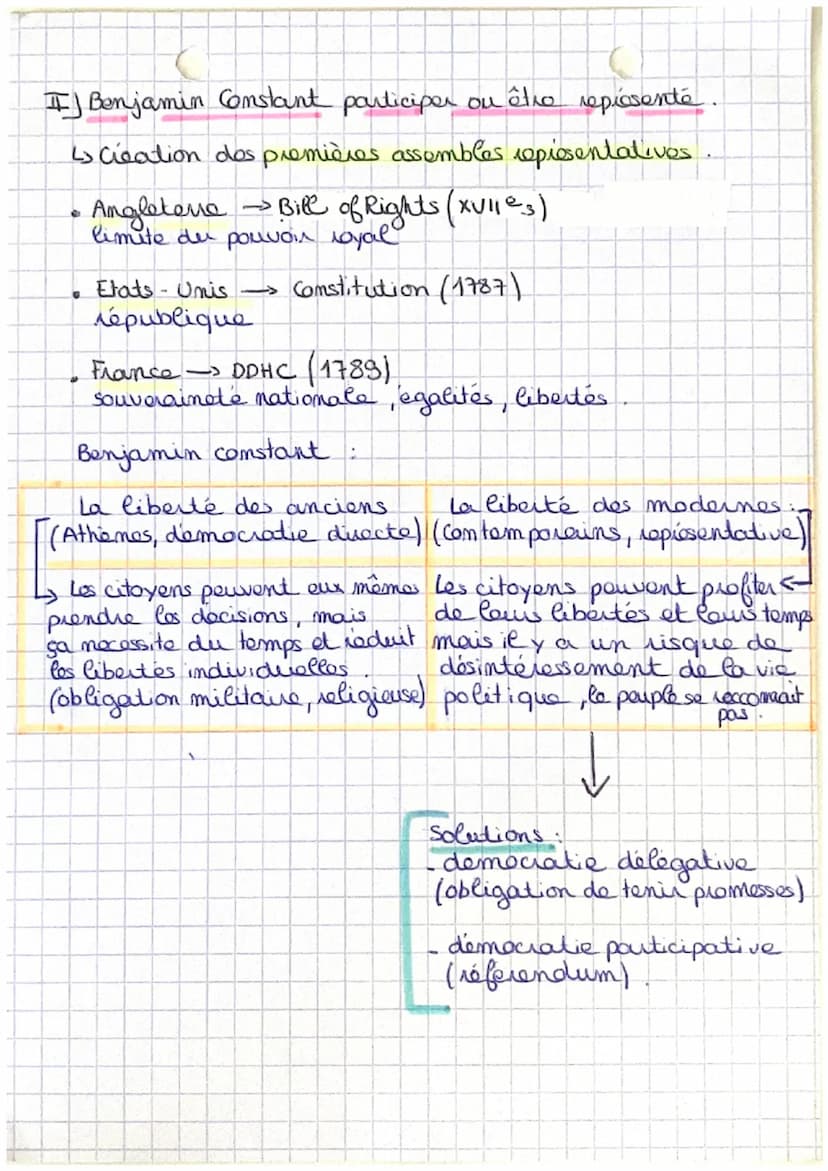 II) Benjamin Constant participer ou être représenté.
↳ Création des premières assembles représentatives.
• Angleterre → Bill of Rights (XVIIes)
limite du pouvoir royal
• Etats-Unis → Constitution (1787)
république
• France → DDHC (1789)
souveraineté nationale, égalités, libertés.
Benjamin constant :
La liberté des anciens
(Athènes, démocratie directe)
↳ Les citoyens peuvent eux mêmes
prendre les décisions, mais
ça necessite du temps et reduit
les libertés individuelles.
(obligation militaire, religieuse)
La liberté des modernes :
(Contemporains, représentative)
Les citoyens peuvent profiter
de leurs libertés et leurs temps
mais il y a un risque de
désintéressement de la vie
politique, le peuple se reccomait
pas.
Solutions :
- democratie délégative
(obligation de tenir promesses)
- démocratie participative
(référendum).